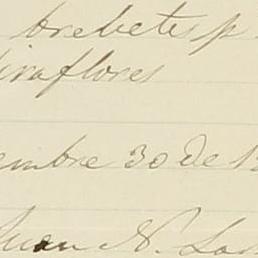 brebetes p
iraflores
embre 30 de 1
Juan N. Lar